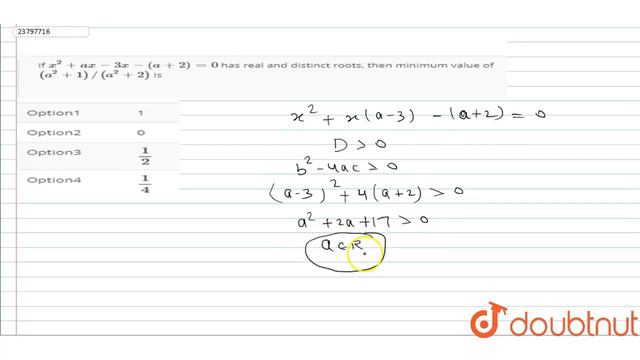 23797716
If x² + ax − 3x − (a + 2) = 0 has real and distinct roots, then minimum value of
(a² + 1) / (a² + 2) is
Option1 1
Option2 0
Option3 1/2
Option4 1/4
x² + x(a-3) - (a+2) = 0
D > 0
b² - 4ac > 0
(a-3)² + 4(a+2) > 0
a² + 2a + 17 > 0
a ∈ R
doubtnut